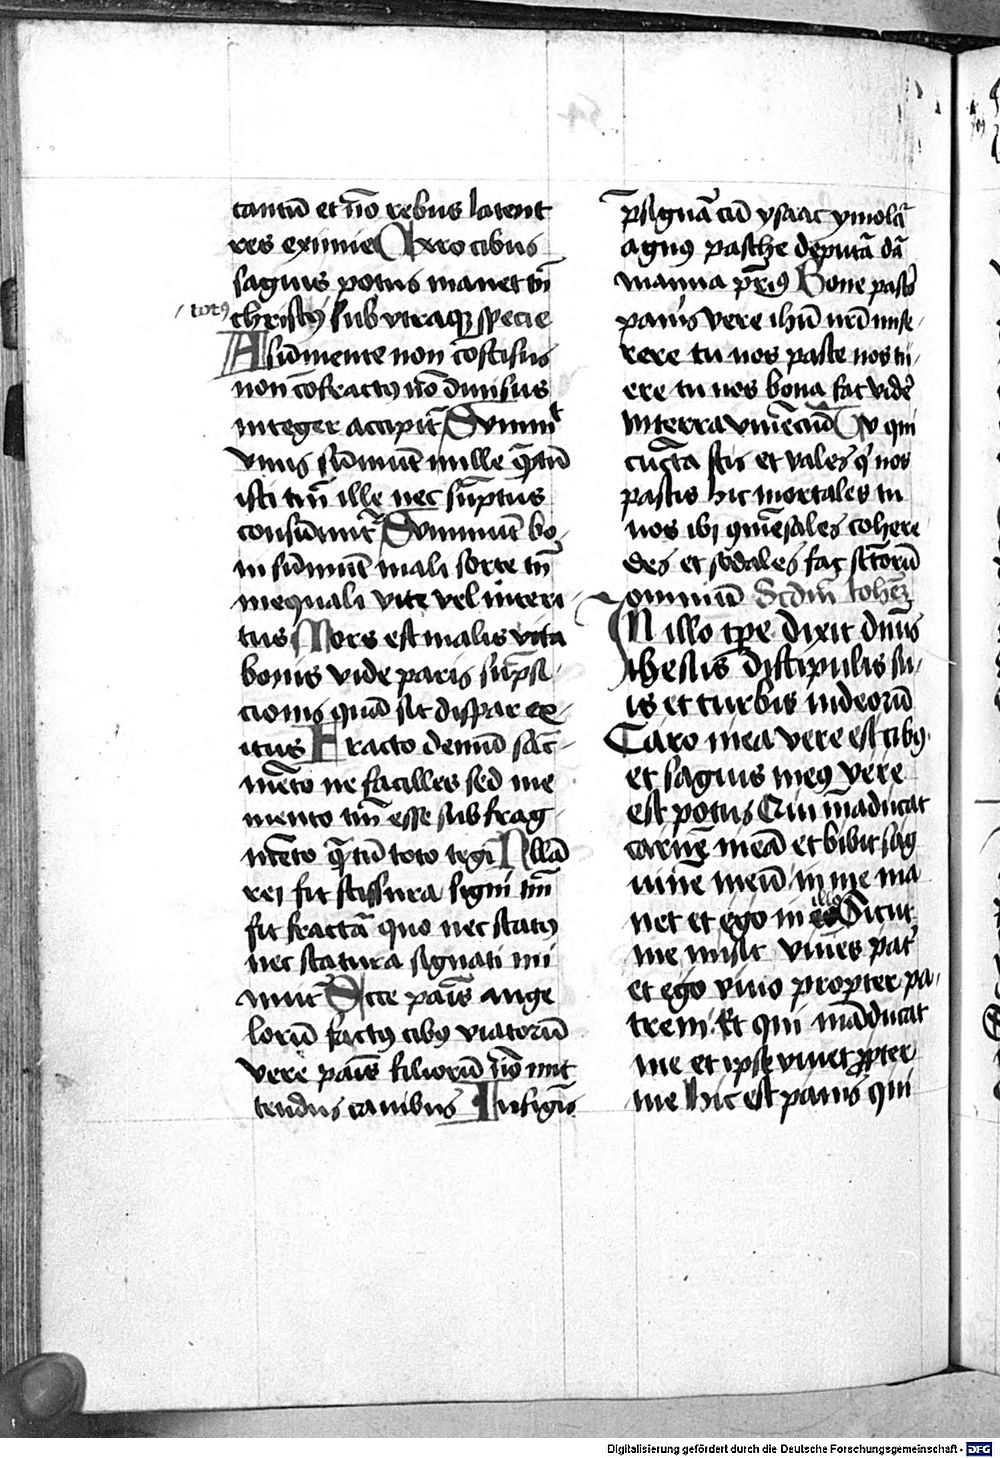 tantū et nō rebus latent
res eximie Caro cibus
saguis potus manet tn̄
totꝰ
christꝰ sub vtraqꝫ specie
A sūmente non cōscisus
non cōfractꝰ nō diuisus
integer accipit᷑ Sumit
vnus sūmūt mille q̄tū
isti tm̄ ille nec sūptus
consūmit᷑ Summūt bo-
ni sūmūt mali sorte tn̄
inequali vite vel interi-
tus Mors est malis vita
bonis vide paris sūpsi-
cionis quā sit dispar ex-
itus Fracto demū sac̄-
mēto ne facilles sed me
mento tm̄ esse sub frag-
mēto q̄tū toto tegi Nllā
rei fit scissura signi tm̄
fit fractā quo nec statꝰ
nec statura signati mi
nuit᷑ Ecce panis ange
lorū factꝰ cibꝰ viatorū
vere panis filiorū nō mit
tendus canibus In figuris
p̄signat᷑ cū ysaac ymolat᷑
agnꝰ pasche deputat᷑ dat᷑
manna pr̄ibꝰ Bone pastor
panis vere ihū nr̄i mise-
rere tu nos pasce nos tu-
ere tu nos bona fac vide᷑
in terra viuēciū Tu qui
cūcta scis et vales q̇ nos
pascis hic mortales tu
nos ibi 9mēsales cohere-
des et sodales fac sc̄torū
omnium Scdm̄ Johēꝫ
IN illo tꝑe dixit dn̄s
ihesus discipulis su-
is et turbis iudeorū
Caro mea vere est cibꝰ
et saguis meꝰ vere
est potus Qui māducat
carnē meā et bibit sag
uinē meū in me ma
net et ego in illo Sicut
me misit viuēs pat᷑
et ego viuo propter pa-
trem Et qui māducat
me et ipse viuet ꝓpter
me hic est panis qui
Digitalisierung gefördert durch die Deutsche Forschungsgemeinschaft - DFG